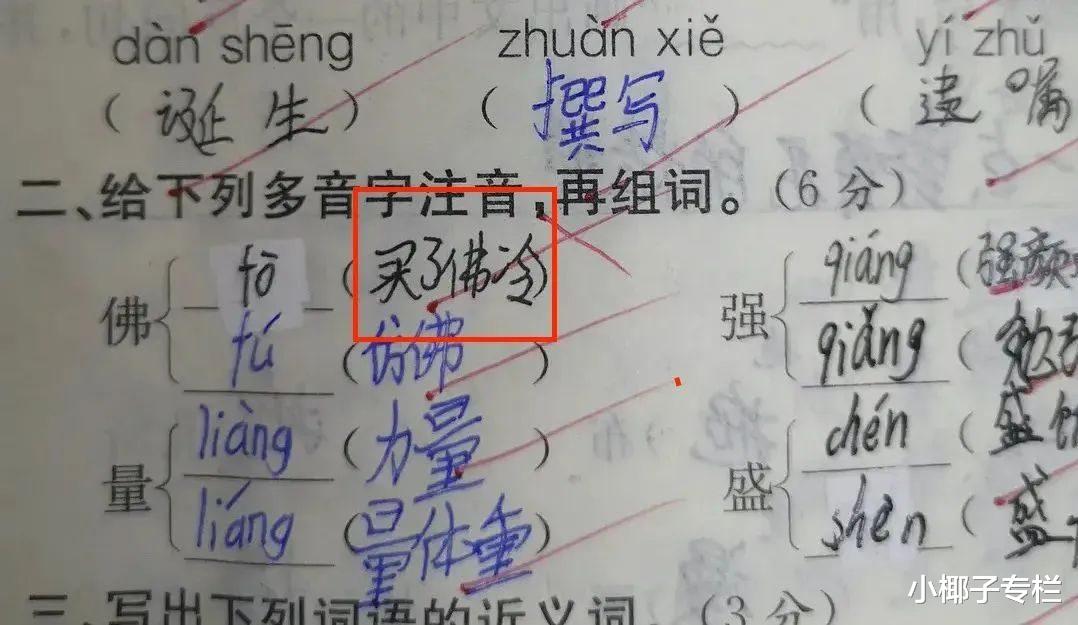 dàn shēng zhuàn xiě yí zhǔ
（诞生） （撰写） （
二、给下列多音字注音，再组词。（6分）
佛 fō （买了佛冷） 强 qiáng （强颜
fú （仿佛） qiǎng （勉
量 liàng （力量） 盛 chén （盛饭
liáng （量体重） shèn （盛
三、写出下列词语的近义词。（3分）
小椰子专栏